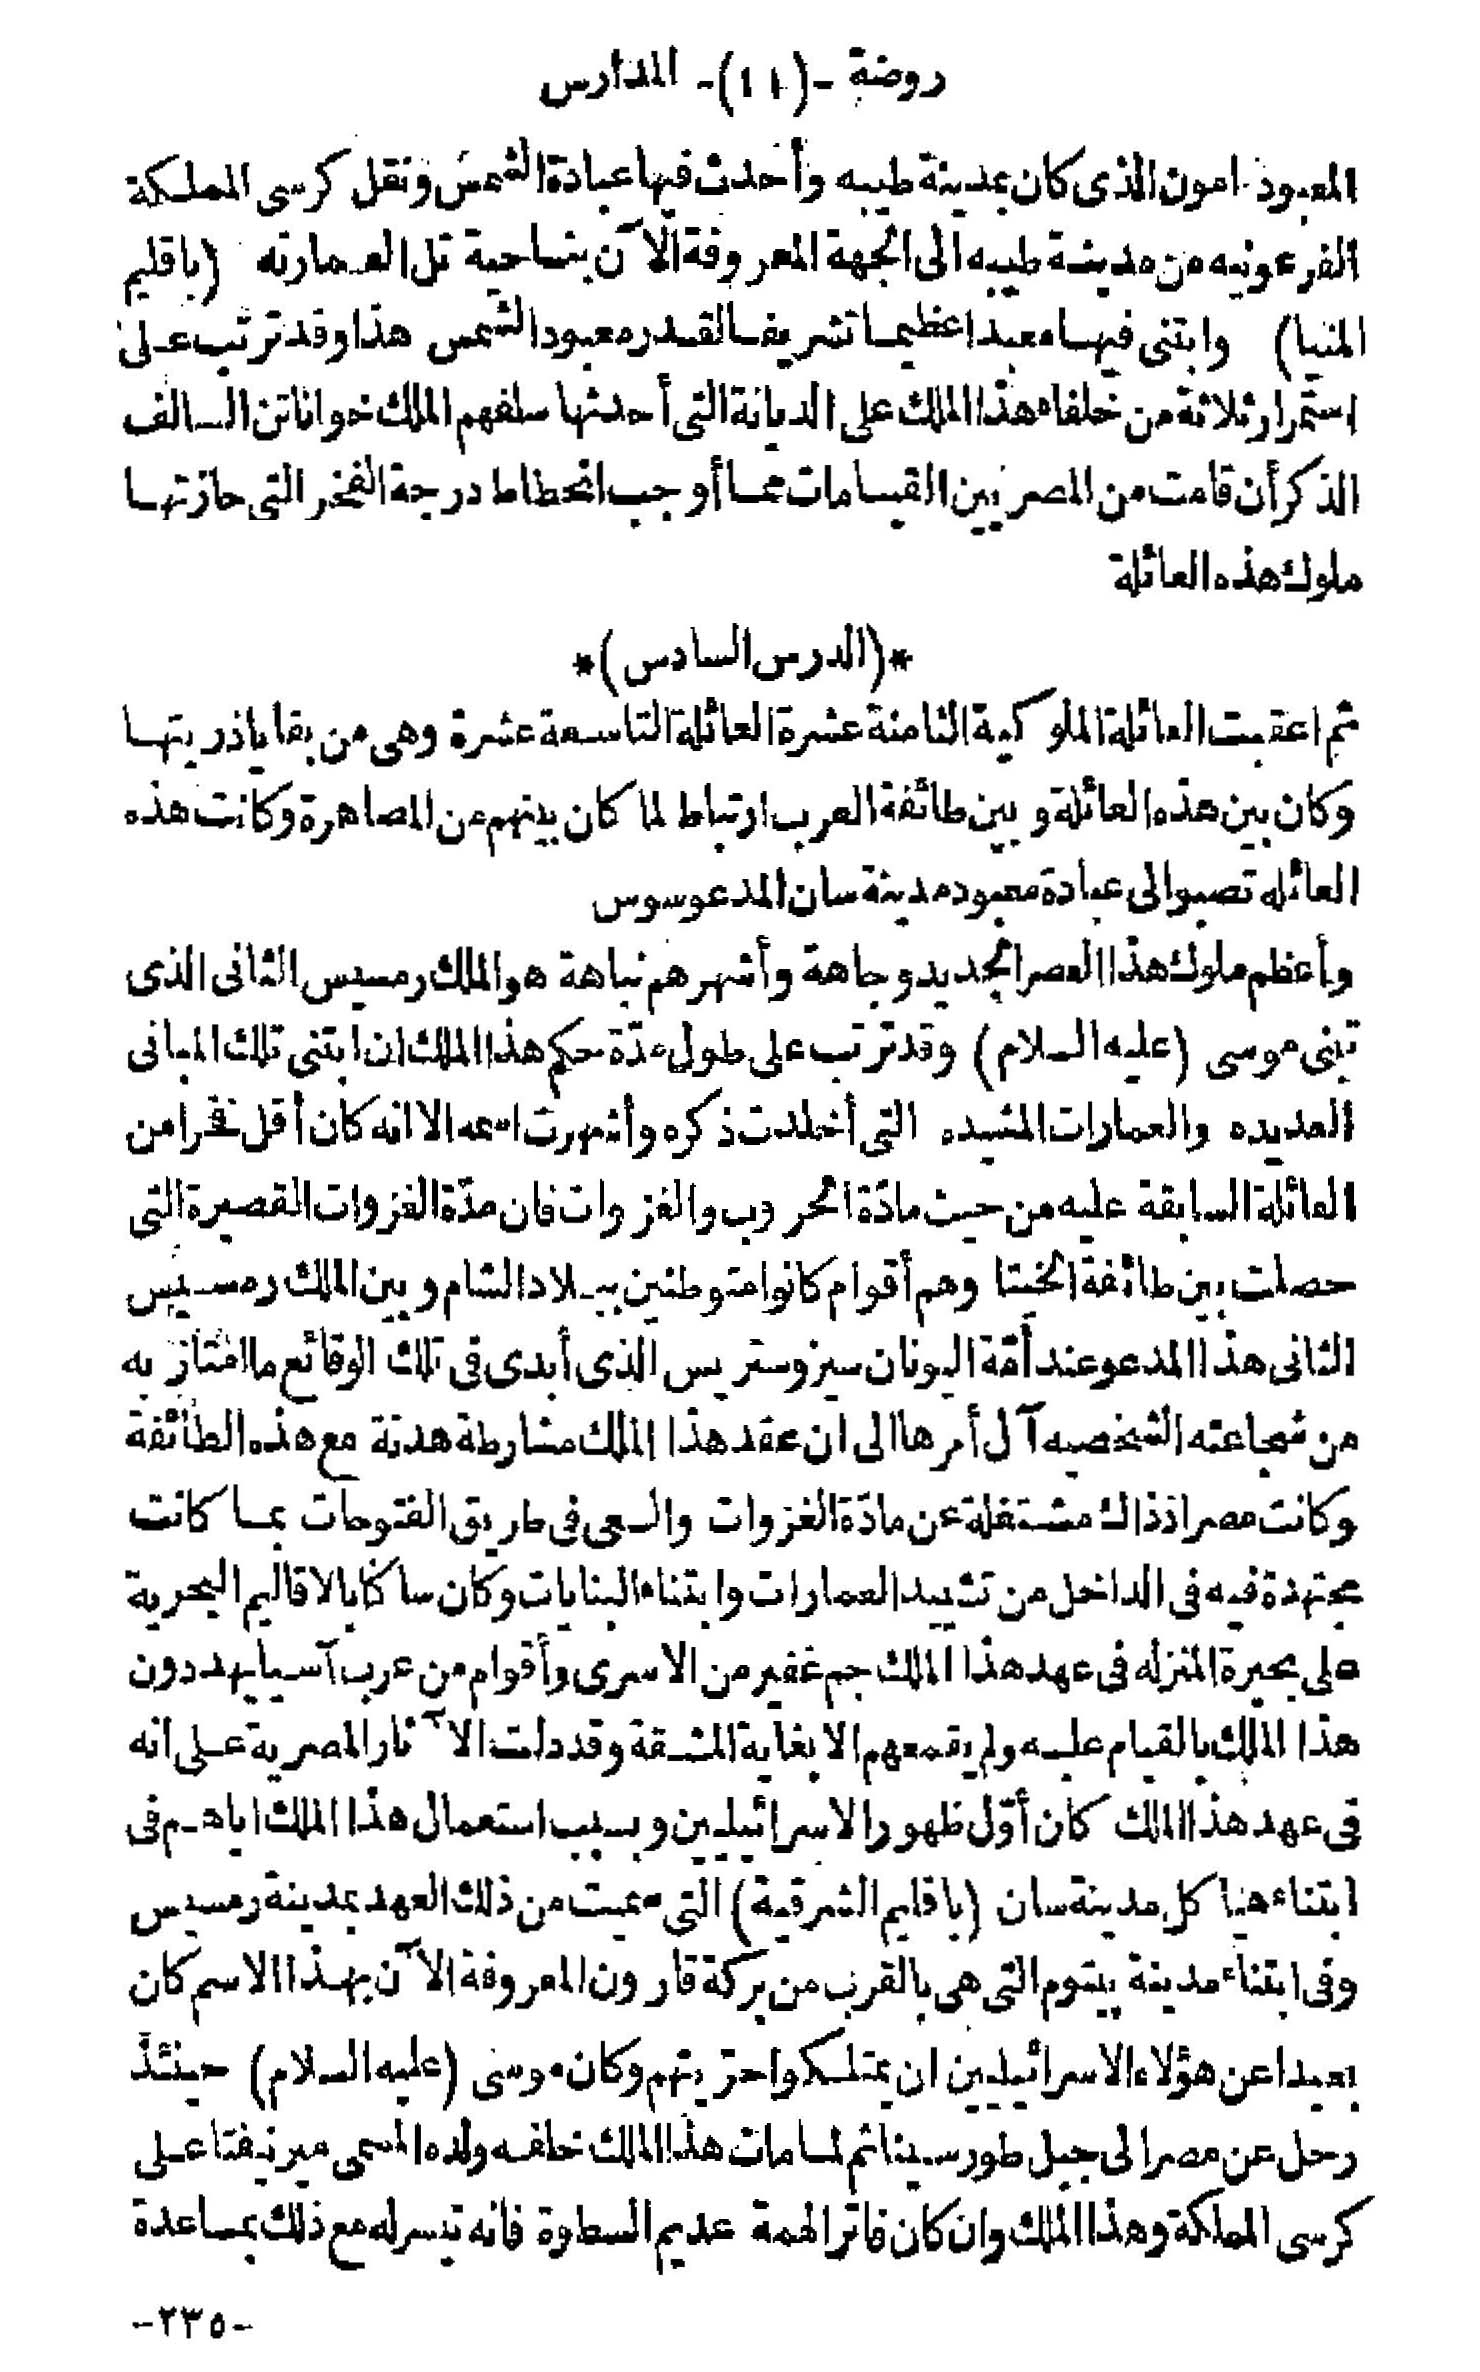 روضة -(١١)- المدارس
المعبود امون الذى كان بمدينة طيبه وأحدث فيها عبادة الشمس ونقل كرسى المملكة
الفرعونيه من مدينة طيبه الى الجهة المعروفة الآن بناحية تل العمارنه (باقليم
المنيا) وابتنى فيها معبدا عظيما تشريفا لقدر معبود الشمس هذا وقد ترتب على
استمرار ثلاثة من خلفاء هذا الملك على الديانة التى أحدثها سلفهم الملك خواناتن السالف
الذكر أن قامت من المصريين القيامات مما أوجب انحطاط درجة الفخر التى حازتها
ملوك هذه العائلة
*(الدرس السادس)*
ثم اعقبت العائلة الملوكية الثامنة عشرة العائلة التاسعة عشرة وهى من بقايا ذريتها
وكان بين هذه العائلة وبين طائفة العرب ارتباط لما كان بينهم من المصاهرة وكانت هذه
العائله تصبوا الى عبادة معبود مدينة سان المدعو سوس
وأعظم ملوك هذا العصر الجديد وجاهة وأشهرهم نباهة هو الملك رمسيس الثانى الذى
تبنى موسى (عليه السلام) وقد ترتب على طول مدّة حكم هذا الملك ان ابتنى تلك المبانى
العديده والعمارات المشيده التى أخلدت ذكره وأشهرت اسمه الا انه كان أقل فخرا من
العائلة السابقة عليه من حيث مادّة الحروب والغزوات فان مدّة الغزوات القصيرة التى
حصلت بين طائفة الخيتا وهم أقوام كانوا متوطنين ببلاد الشام وبين الملك رمسيس
الثانى هذا المدعو عند أمّة اليونان سيزوستريس الذى أبدى فى تلك الوقائع ما امتاز به
من شجاعته الشخصيه آل أمرها الى ان عقد هذا الملك مشارطة هدنة مع هذه الطائفة
وكانت مصر اذ ذاك مشتغلة عن مادّة الغزوات والسعى فى طريق الفتوحات بما كانت
مجتهدة فيه فى الداخل من تشييد العمارات وابتناء البنايات وكان ساكنا بالاقاليم البحرية
على بحيرة المنزله فى عهد هذا الملك جم غفير من الاسرى وأقوام من عرب آسيا يهددون
هذا الملك بالقيام عليه ولم يقمعهم الا بغاية المشقة وقد دلت الآثار المصرية على انه
فى عهد هذا الملك كان أوّل ظهور الاسرائيليين وبسبب استعمال هذا الملك اياهم فى
ابتناء هياكل مدينة سان (باقليم الشرقية) التى سميت من ذلك العهد بمدينة رمسيس
وفى ابتناء مدينة بيتوم التى هى بالقرب من بركة قارون المعروفة الآن بهذا الاسم كان
بعيدا عن هؤلاء الاسرائيليين ان يمتلكوا حرّيتهم وكان موسى (عليه السلام) حينئذ
رحل عن مصر الى جبل طور سينا ثم لما مات هذا الملك خلفه ولده المسمى ميرنيفتا على
كرسى المملكة وهذا الملك وان كان فاتر الهمة عديم السطوة فانه تيسر له مع ذلك بمساعدة
-٢٣٥-